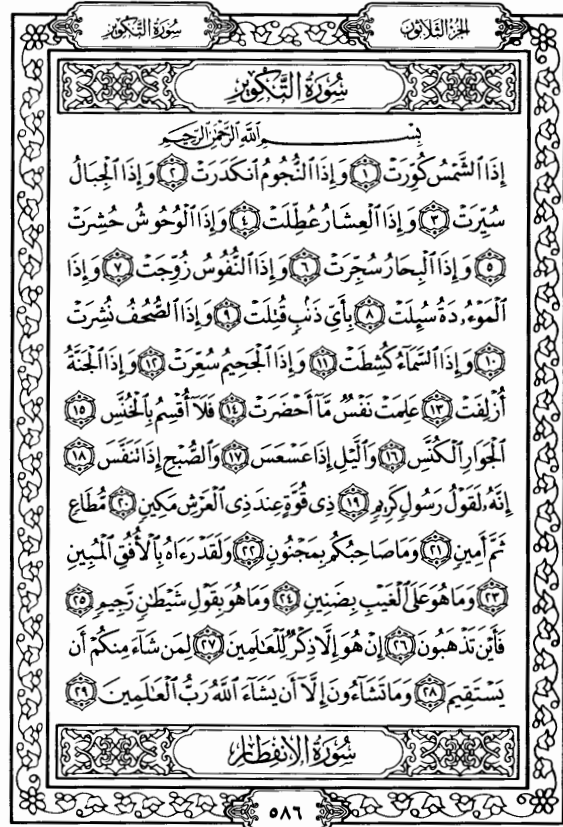 الجزء الثلاثون
سورة التكوير
سُورَةُ التَّكْوِيرِ
بِسْمِ اللَّهِ الرَّحْمَٰنِ الرَّحِيمِ
إِذَا الشَّمْسُ كُوِّرَتْ ١ وَإِذَا النُّجُومُ انكَدَرَتْ ٢ وَإِذَا الْجِبَالُ
سُيِّرَتْ ٣ وَإِذَا الْعِشَارُ عُطِّلَتْ ٤ وَإِذَا الْوُحُوشُ حُشِرَتْ
٥ وَإِذَا الْبِحَارُ سُجِّرَتْ ٦ وَإِذَا النُّفُوسُ زُوِّجَتْ ٧ وَإِذَا
الْمَوْءُۥدَةُ سُئِلَتْ ٨ بِأَيِّ ذَنْبٍ قُتِلَتْ ٩ وَإِذَا الصُّحُفُ نُشِرَتْ
١٠ وَإِذَا السَّمَاءُ كُشِطَتْ ١١ وَإِذَا الْجَحِيمُ سُعِّرَتْ ١٢ وَإِذَا الْجَنَّةُ
أُزْلِفَتْ ١٣ عَلِمَتْ نَفْسٌ مَّا أَحْضَرَتْ ١٤ فَلَا أُقْسِمُ بِالْخُنَّسِ ١٥
الْجَوَارِ الْكُنَّسِ ١٦ وَالَّيْلِ إِذَا عَسْعَسَ ١٧ وَالصُّبْحِ إِذَا تَنَفَّسَ ١٨
إِنَّهُۥ لَقَوْلُ رَسُولٍ كَرِيمٍ ١٩ ذِي قُوَّةٍ عِندَ ذِي الْعَرْشِ مَكِينٍ ٢٠ مُّطَاعٍ
ثَمَّ أَمِينٍ ٢١ وَمَا صَاحِبُكُم بِمَجْنُونٍ ٢٢ وَلَقَدْ رَءَاهُ بِالْأُفُقِ الْمُبِينِ
٢٣ وَمَا هُوَ عَلَى الْغَيْبِ بِضَنِينٍ ٢٤ وَمَا هُوَ بِقَوْلِ شَيْطَٰنٍ رَّجِيمٍ ٢٥
فَأَيْنَ تَذْهَبُونَ ٢٦ إِنْ هُوَ إِلَّا ذِكْرٌ لِّلْعَٰلَمِينَ ٢٧ لِمَن شَاءَ مِنكُمْ أَن
يَسْتَقِيمَ ٢٨ وَمَا تَشَاءُونَ إِلَّا أَن يَشَاءَ اللَّهُ رَبُّ الْعَٰلَمِينَ ٢٩
سُورَةُ الِانْفِطَارِ
٥٨٦